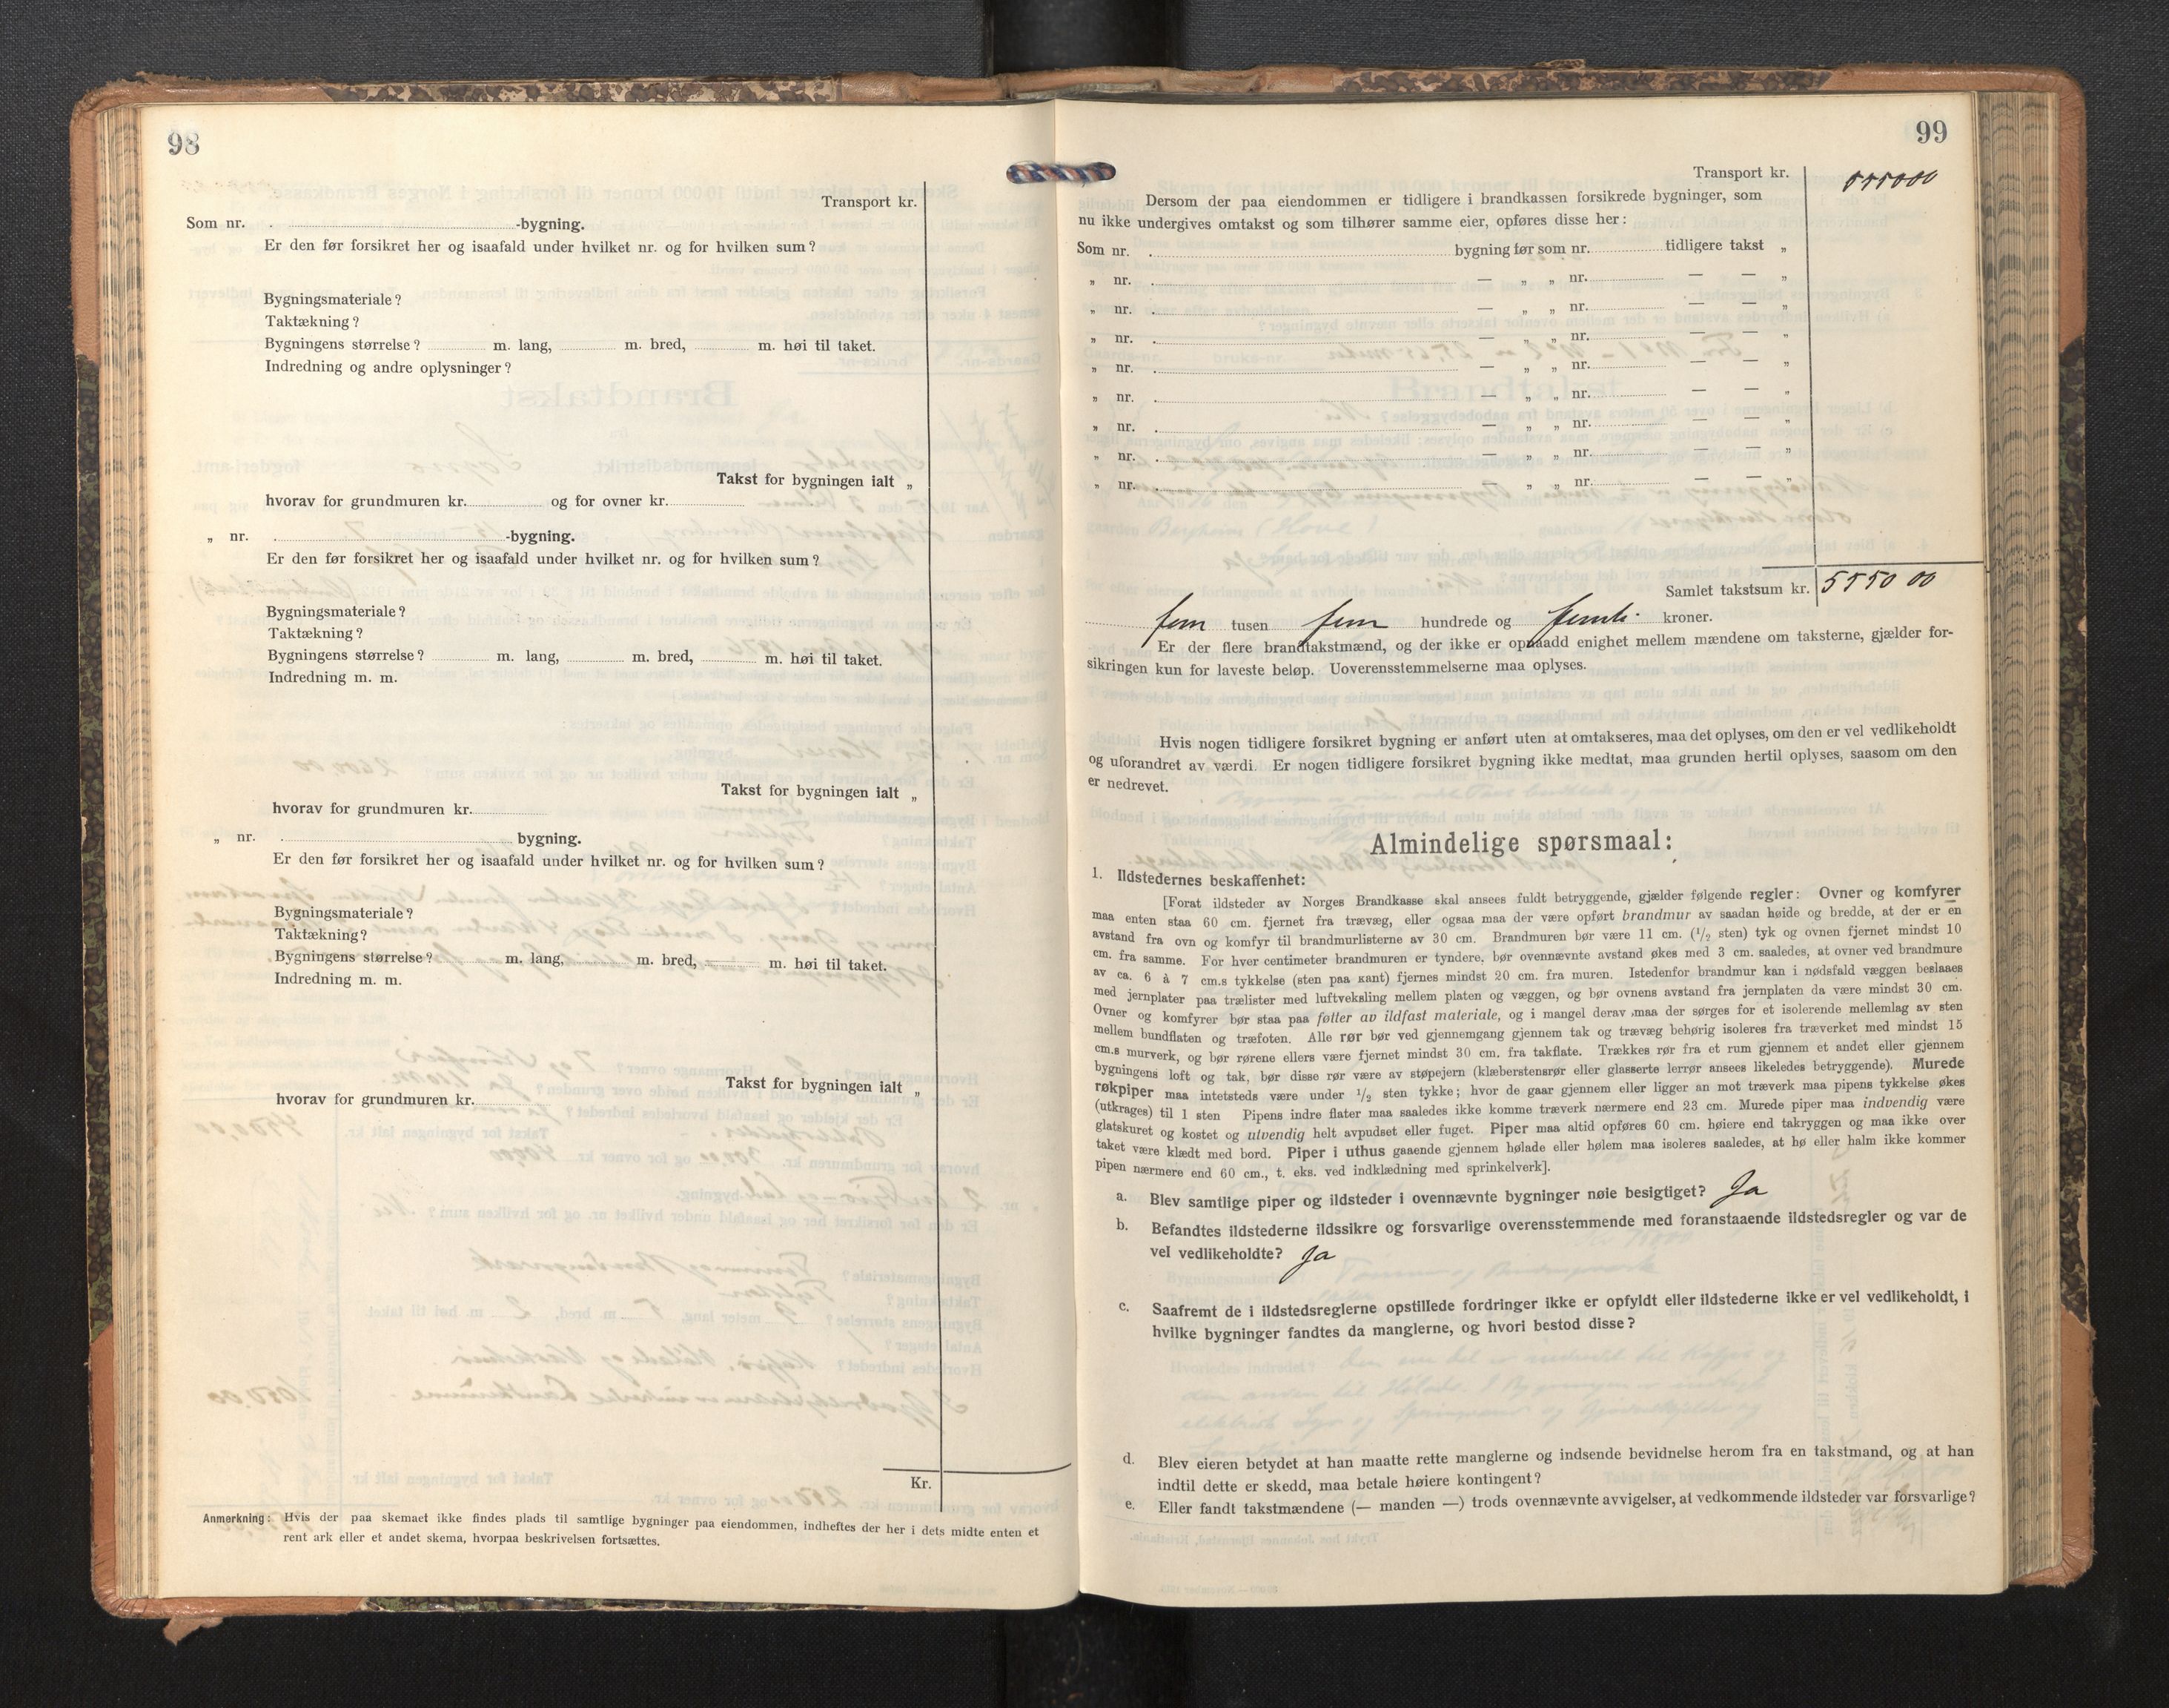 98
Transport kr.
Som nr. -bygning.
Er den før forsikret her og isaafald under hvilket nr. og for hvilken sum?
Bygningsmateriale?
Taktækning?
Bygningens størrelse? m. lang, m. bred, m. høi til taket.
Indredning og andre oplysninger?
Takst for bygningen ialt „
hvorav for grundmuren kr. og for ovner kr.
„ nr. -bygning.
Er den før forsikret her og isaafald under hvilket nr. og for hvilken sum?
Bygningsmateriale?
Taktækning?
Bygningens størrelse? m. lang, m. bred, m. høi til taket.
Indredning m. m.
Takst for bygningen ialt „
hvorav for grundmuren kr.
„ nr. bygning.
Er den før forsikret her og isaafald under hvilket nr. og for hvilken sum?
Bygningsmateriale?
Taktækning?
Bygningens størrelse? m. lang, m. bred, m. høi til taket.
Indredning m. m.
Takst for bygningen ialt „
hvorav for grundmuren kr.
Kr.
Anmerkning: Hvis der paa skemaet ikke findes plads til samtlige bygninger paa eiendommen, indheftes der her i dets midte enten et
rent ark eller et andet skema, hvorpaa beskrivelsen fortsættes.
99
Transport kr. 555000
Dersom der paa eiendommen er tidligere i brandkassen forsikrede bygninger, som
nu ikke undergives omtakst og som tilhører samme eier, opføres disse her:
Som nr. bygning før som nr. tidligere takst „
„ nr. — „ „ nr. — — „
„ nr. — „ „ nr. — — „
„ nr. — „ „ nr. — — „
„ nr. — „ „ nr. — — „
„ nr. — „ „ nr. — — „
„ nr. — „ „ nr. — — „
„ nr. — „ „ nr. — — „
„ nr. — „ „ nr. — — „
Samlet takstsum kr. 5550 00
fem tusen fem hundrede og femti kroner.
Er der flere brandtakstmænd, og der ikke er opnaadd enighet mellem mændene om taksterne, gjælder for-
sikringen kun for laveste beløp. Uoverensstemmelserne maa oplyses.
Hvis nogen tidligere forsikret bygning er anført uten at omtakseres, maa det oplyses, om den er vel vedlikeholdt
og uforandret av værdi. Er nogen tidligere forsikret bygning ikke medtat, maa grunden hertil oplyses, saasom om den
er nedrevet.
Almindelige spørsmaal:
1. Ildstedernes beskaffenhet:
[Forat ildsteder av Norges Brandkasse skal ansees fuldt betryggende, gjælder følgende regler: Ovner og komfyrer
maa enten staa 60 cm. fjernet fra trævæg, eller ogsaa maa der være opført brandmur av saadan høide og bredde, at der er en
avstand fra ovn og komfyr til brandmurlisterne av 30 cm. Brandmuren bør være 11 cm. (1/2 sten) tyk og ovnen fjernet mindst 10
cm. fra samme. For hver centimeter brandmuren er tyndere, bør ovennævnte avstand økes med 3 cm. saaledes, at ovner ved brandmure
av ca. 6 à 7 cm.s tykkelse (sten paa kant) fjernes mindst 20 cm. fra muren. Istedenfor brandmur kan i nødsfald væggen beslaaes
med jernplater paa trælister med luftveksling mellem platen og væggen, og bør ovnens avstand fra jernplaten da være mindst 30 cm.
Ovner og komfyrer bør staa paa føtter av ildfast materiale, og i mangel derav maa der sørges for et isolerende mellemlag av sten
mellem bundflaten og træfoten. Alle rør bør ved gjennemgang gjennem tak og trævæg behørig isoleres fra træverket med mindst 15
cm.s murverk, og bør rørene ellers være fjernet mindst 30 cm. fra takflate. Trækkes rør fra et rum gjennem et andet eller gjennem
bygningens loft og tak, bør disse rør være av støpejern (klæberstensrør eller glasserte lerrør ansees likeledes betryggende). Murede
røkpiper maa intetsteds være under 1/2 sten tykke; hvor de gaar gjennem eller ligger an mot træverk maa pipens tykkelse økes
(utkrages) til 1 sten Pipens indre flater maa saaledes ikke komme træverk nærmere end 23 cm. Murede piper maa indvendig være
glatskuret og kostet og utvendig helt avpudset eller fuget. Piper maa altid opføres 60 cm. høiere end takryggen og maa ikke over
taket være klædt med bord. Piper i uthus gaaende gjennem hølade eller hølem maa isoleres saaledes, at hø eller halm ikke kommer
pipen nærmere end 60 cm., t. eks. ved indklædning med sprinkelverk].
a. Blev samtlige piper og ildsteder i ovennævnte bygninger nøie besigtiget? Ja
b. Befandtes ildstederne ildssikre og forsvarlige overensstemmende med foranstaaende ildstedsregler og var de
vel vedlikeholdte? Ja
c. Saafremt de i ildstedsreglerne opstillede fordringer ikke er opfyldt eller ildstederne ikke er vel vedlikeholdt, i
hvilke bygninger fandtes da manglerne, og hvori bestod disse?
d. Blev eieren betydet at han maatte rette manglerne og indsende bevidnelse herom fra en takstmand, og at han
indtil dette er skedd, maa betale høiere kontingent?
e. Eller fandt takstmændene (— manden —) trods ovennævnte avvigelser, at vedkommende ildsteder var forsvarlige?